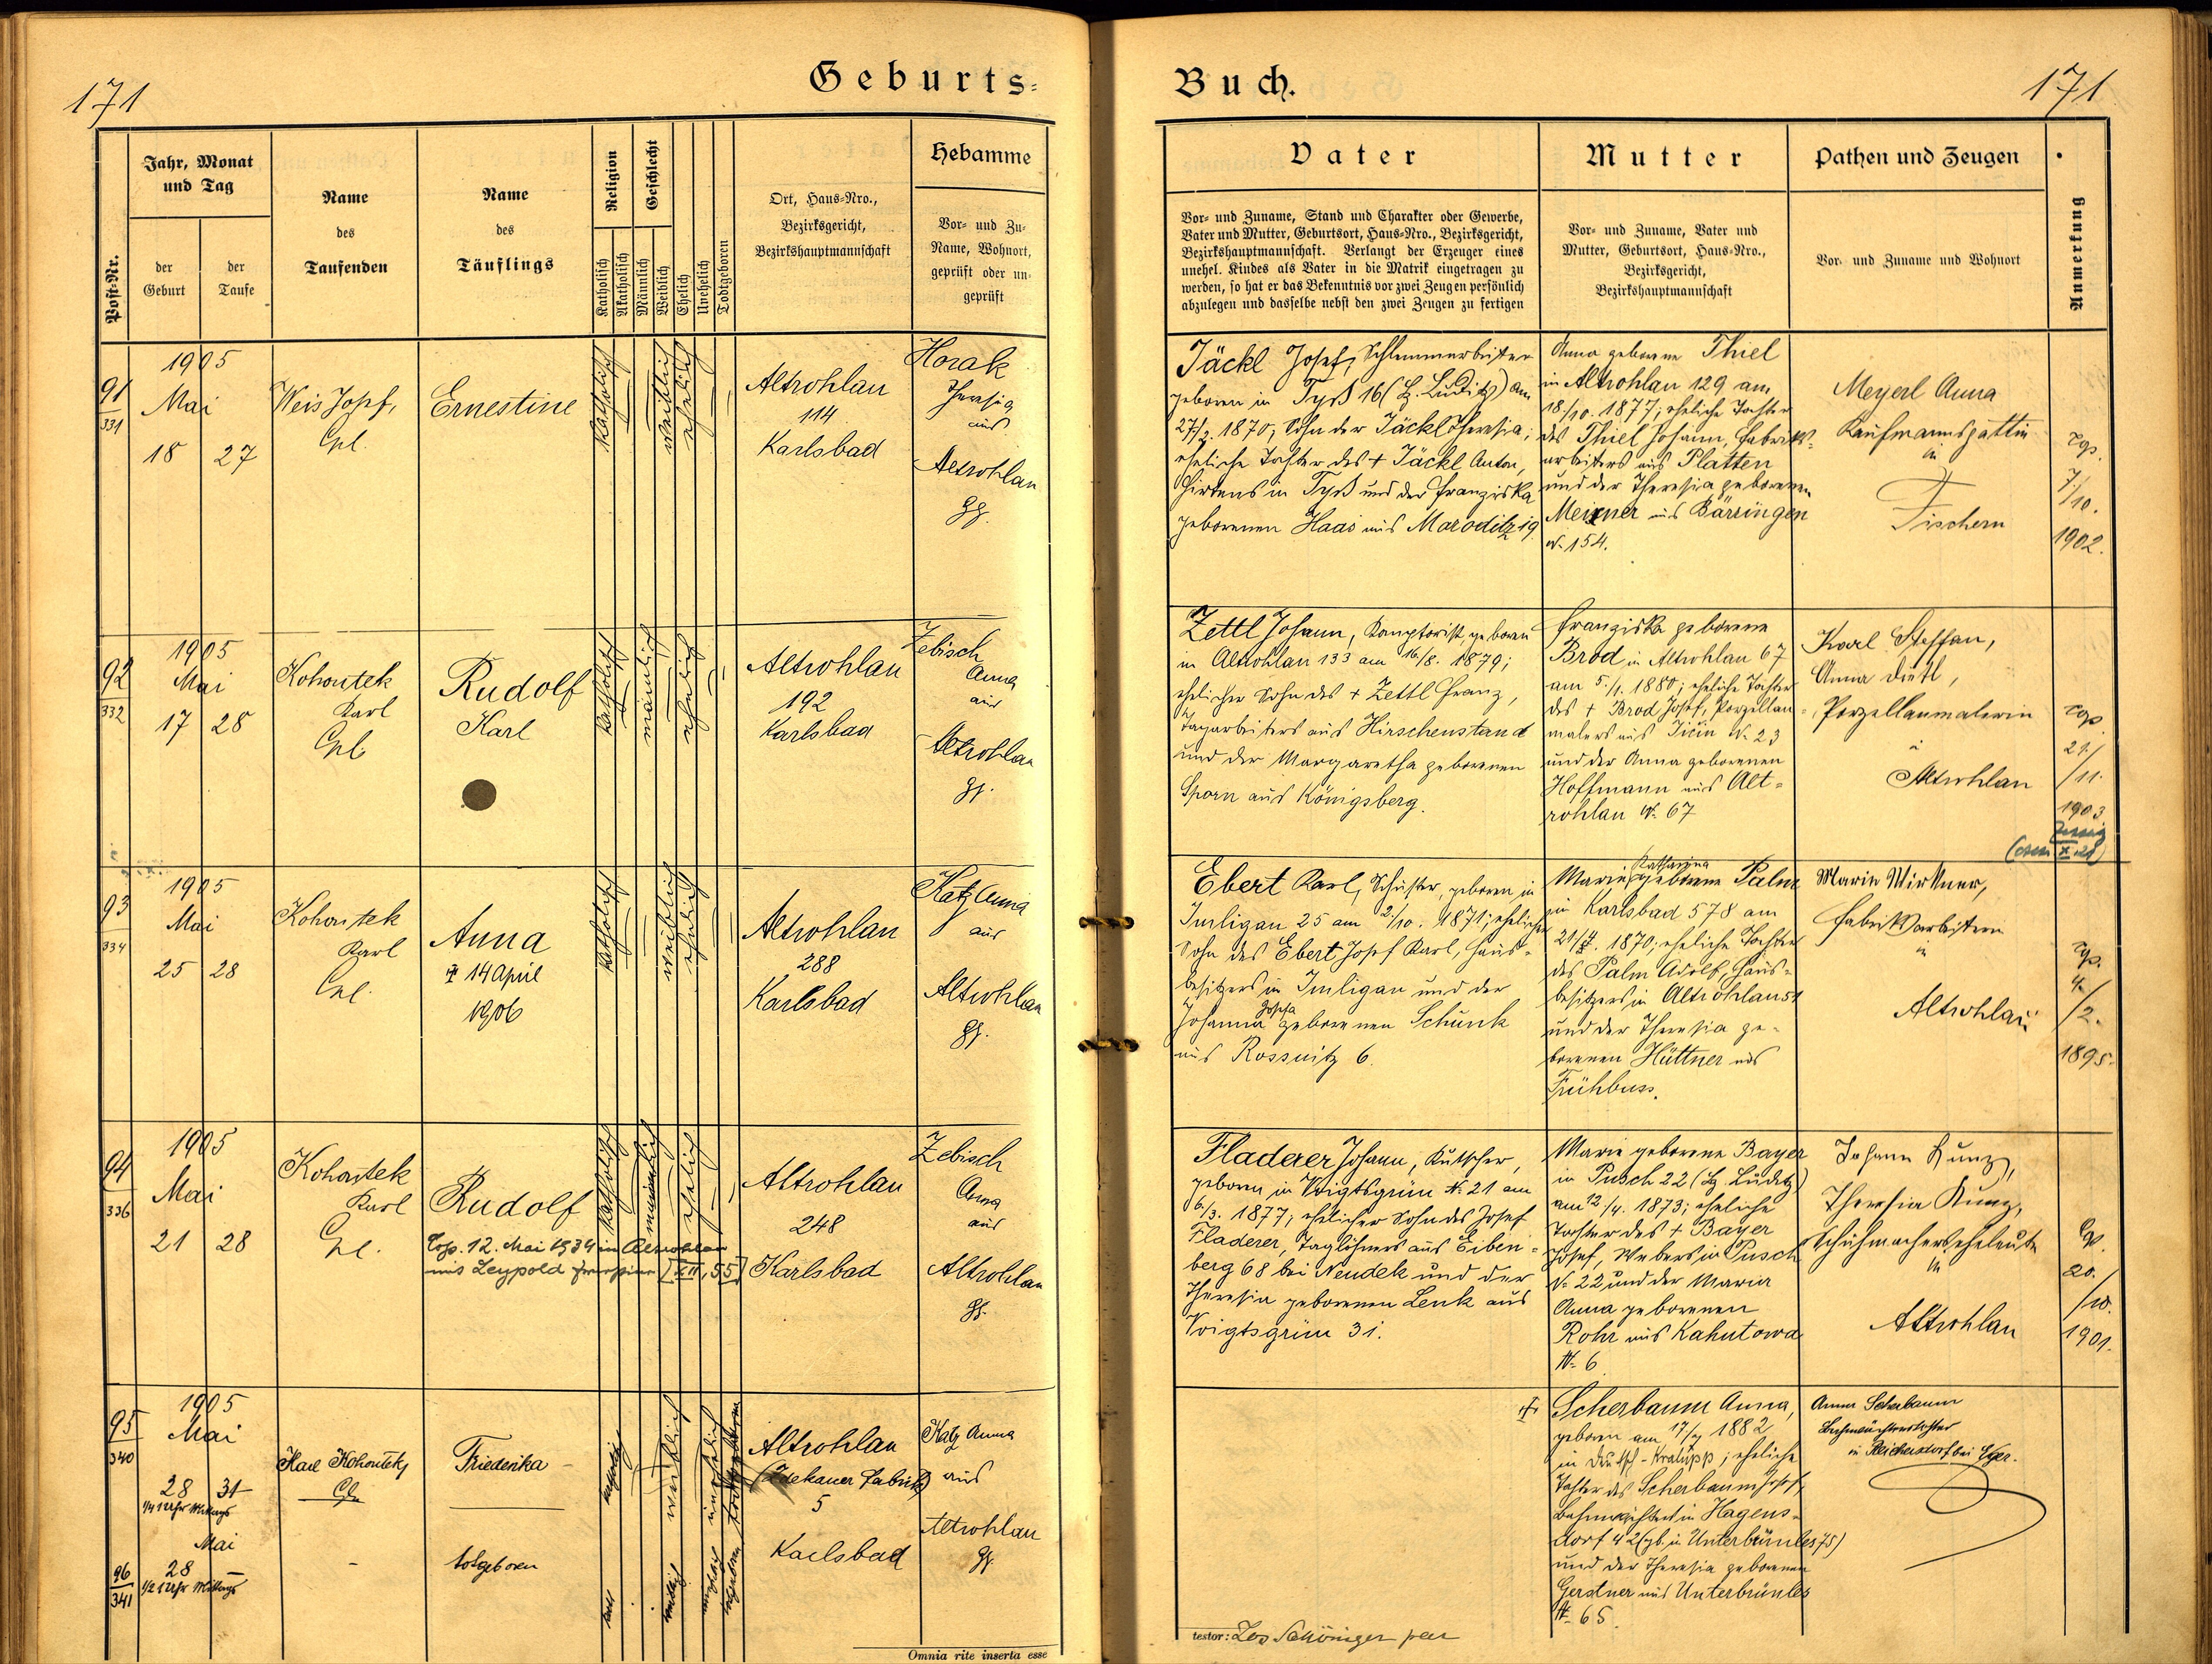 171
Geburts-
Post-Nr.
Jahr, Monat
und Tag
der
Geburt
der
Taufe
Name
des
Taufenden
Name
des
Täuflings
Religion
Katholisch
Akatholisch
Geschlecht
Männlich
Weiblich
Ehelich
Unehelich
Todtgeboren
Ort, Haus-Nro.,
Bezirksgericht,
Bezirkshauptmannschaft
Hebamme
Vor- und Zu-
Name, Wohnort,
geprüft oder un-
geprüft
91
331
1905
Mai
18 27
Weis Josef,
Cpl.
Ernestine
katholisch
weiblich
ehelich
Altrohlau
114
Karlsbad
Horak
Theresia
aus
Altrohlau
gg.
92
332
1905
Mai
17 28
Kohoutek
Karl
Cpl
Rudolf
Karl
katholisch
männlich
ehelich
Altrohlau
192
Karlsbad
Zebisch
Anna
aus
Altrohlau
gg.
93
334
1905
Mai
25 28
Kohoutek
Karl
Cpl.
Anna
† 14 April
1906
katholisch
weiblich
ehelich
Altrohlau
288
Karlsbad
Katz Anna
aus
Altrohlau
gg.
94
336
1905
Mai
21 28
Kohoutek
Karl
Cpl.
Rudolf
Cop. 12. Mai 1934 in Altrohlau
mit Leypold
katholisch
männlich
ehelich
Altrohlau
248
Karlsbad
Zebisch
Anna
aus
Altrohlau
gg.
95
340
1905
Mai
28 31
1/4 1 Uhr Mittags
Karl Kohoutek,
Cpl.
Friederika
weiblich
unehelich
todtgeboren
Altrohlau
5
Karlsbad
Katz Anna
aus
Altrohlau
gg.
96
341
Mai
28 –
1/2 1 Uhr Mittags
–
totgeboren
Omnia rite inserta esse
Buch.
171
Vater
Vor- und Zuname, Stand und Charakter oder Gewerbe,
Vater und Mutter, Geburtsort, Haus-Nro., Bezirksgericht,
Bezirkshauptmannschaft. Verlangt der Erzeuger eines
unehel. Kindes als Vater in die Matrik eingetragen zu
werden, so hat er das Bekenntnis vor zwei Zeugen persönlich
abzulegen und dasselbe nebst den zwei Zeugen zu fertigen
Mutter
Vor- und Zuname, Vater und
Mutter, Geburtsort, Haus-Nro.,
Bezirksgericht,
Bezirkshauptmannschaft
Pathen und Zeugen
Vor- und Zuname und Wohnort
Anmerkung
Jäckl Josef, Schlemmarbeiter
geboren in Tyß 16 (B. Luditz) am
27/2. 1870; Sohn der Jäckl Theresia;
eheliche Tochter des † Jäckl Anton,
Hirtens in Tyß und der Franziska
geborenen Haas aus Maroditz 19
Anna geborene Thiel
in Altrohlau 129 am
18./10. 1877; eheliche Tochter
des Thiel Johann, Fabriks-
arbeiters aus Platten
und der Theresia geborenen
Meixner aus Bärringen
N. 154.
Meyerl Anna
Kaufmannsgattin
in
Fischern
cop.
7./10.
1902.
Zettl Johann, Komptorist, geboren
in Altrohlau 133 am 16/8. 1879;
ehelicher Sohn des † Zettl Franz,
Tagarbeiters aus Hirschenstand
und der Margaretha geborenen
Sporn aus Königsberg.
Franziska geborene
Brod in Altrohlau 67
am 5./1. 1880; eheliche Tochter
des † Brod Josef, Porzellan-
malers aus Jičin N. 23
und der Anna geborenen
Hoffmann aus Alt-
rohlau N. 67
Karl Steffan,
Anna Dietl,
Porzellanmalerin
Altrohlau
cop.
21./
/11.
1903
Ebert Karl, Schuster, geboren in
Imligau 25 am 2./10. 1871; ehelicher
Sohn des Ebert Josef Karl, Haus-
besitzers in Imligau und der
Johanna Josefa geborenen Schunk
aus Rossnitz 6.
Marie Katharina geborene Palm
in Karlsbad 578 am
1870; eheliche Tochter
des Palm Adolf, Haus-
besitzers in Altrohlau
und der Theresia ge-
borenen Hüttner aus
Frühbuss.
Marie Wirkner,
Fabriksarbeiterin
in
Altrohlau
cop.
4./
/2.
1895.
Fladerer Johann, Kutscher,
geboren in Voigtsgrün N. 21 am
6./3. 1877; ehelicher Sohn des Josef
Fladerer, Taglöhners aus Eiben-
berg 68 bei Neudek und der
Theresia geborenen Lenk aus
Voigtsgrün 31.
Marie geborene Bayer
in Pusch 22 (B. Luditz)
am 12/4. 1873; eheliche
Tochter des † Bayer
Josef, Webers in Pusch
N. 22 und der Maria
Anna geborenen
Rohr aus Kahutowa
N. 6
Johann Kunz,
Theresia Kunz,
Schuhmacherseheleute
in
Altrohlau
Cop.
20.
/10.
1901.
Scherbaum Anna,
geboren am 1882
in Deutsch-Kralupp; eheliche
Tochter des Scherbaum Josef,
Bahnwächter in Hagens-
dorf 42 (gb. in Unterbrünles 75)
und der Theresia geborenen
Gerstner aus Unterbrünles
N. 65.
Anna Scherbaum
Bahnwächterstochter
in Reichersdorf bei Eger.
testor: